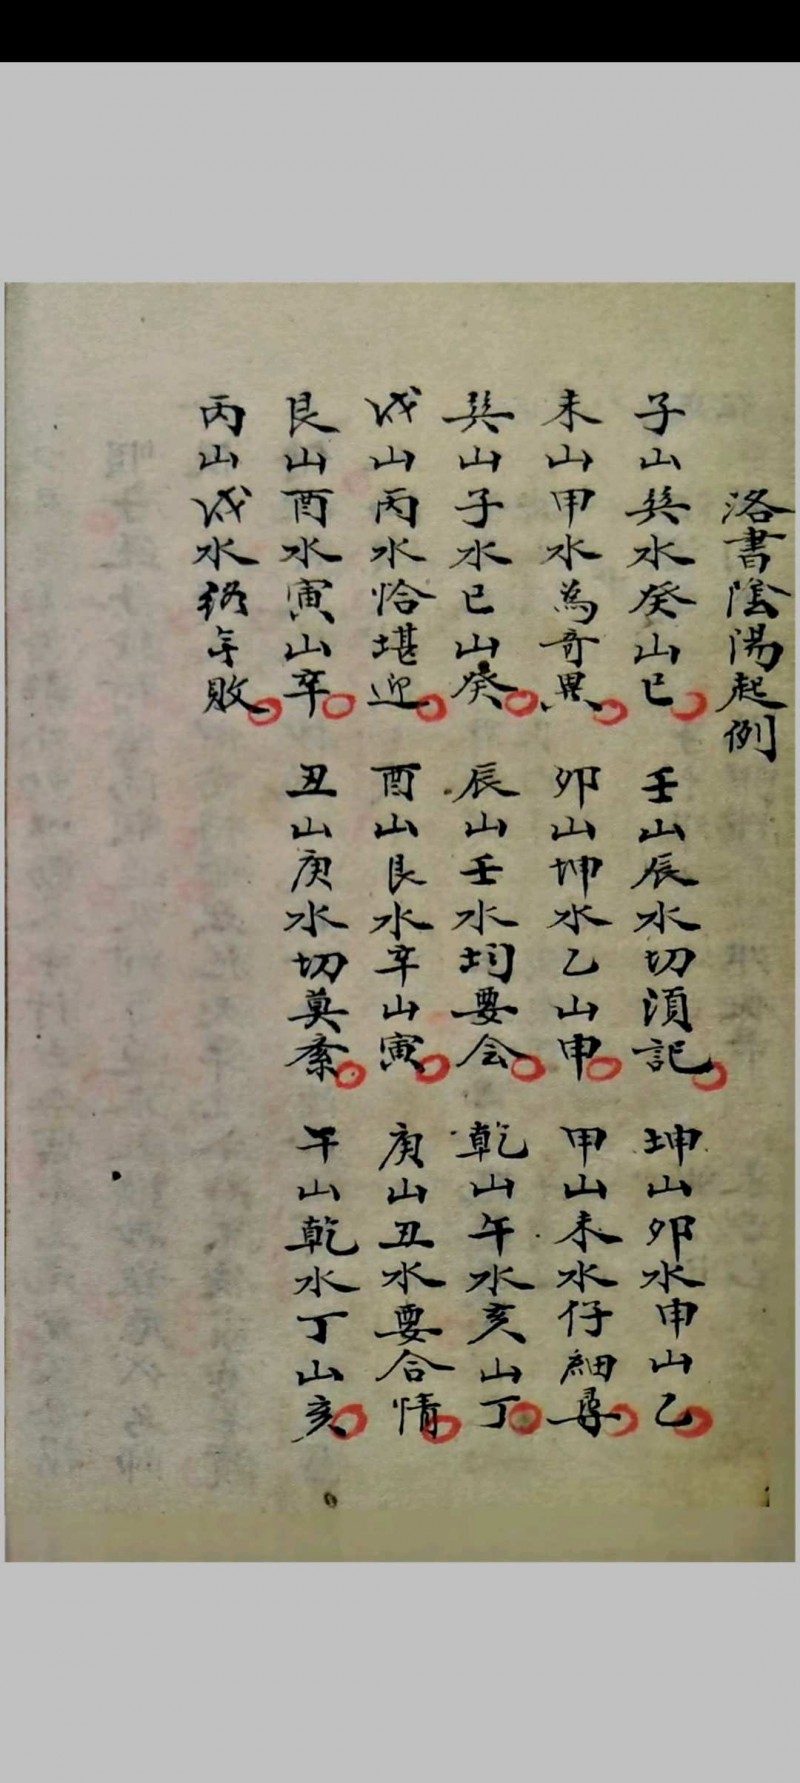 洛書陰陽起例
子山巽水癸山巳 壬山辰水切須記 坤山卯水申山乙
未山甲水為奇異 卯山坤水乙山申 甲山未水仔細尋
巽山子水巳山癸 辰山壬水均要会 乾山午水亥山丁
戌山丙水恰堪迎 酉山艮水辛山寅 庚山丑水要合情
艮山酉水寅山辛 丑山庚水切莫紊 午山乾水丁山亥
丙山戌水終年敗